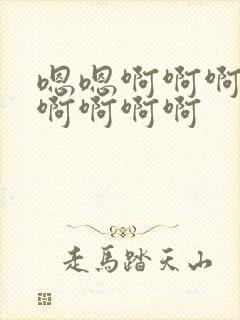 嗯嗯啊啊啊
啊啊啊啊
走馬踏天山